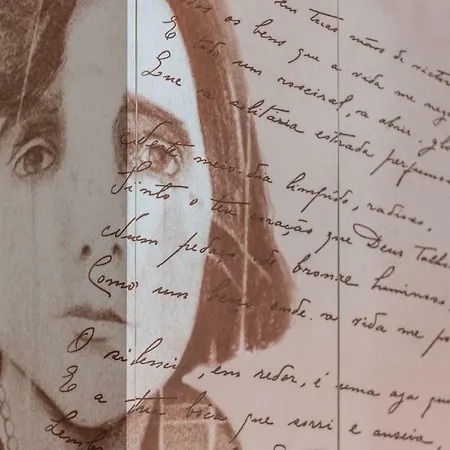 em tuas mãos de
os bens que a vida me
E todo um roseiral, a abrir,
Que a solitária estrada perfumou
Neste meio-dia límpido, radioso,
Sinto o teu coração que Deus
Num pedaço de bronze luminoso
Como um berço onde a vida me
O silencio, em redor, é uma asa
E a tua boca que sorri e anseia,